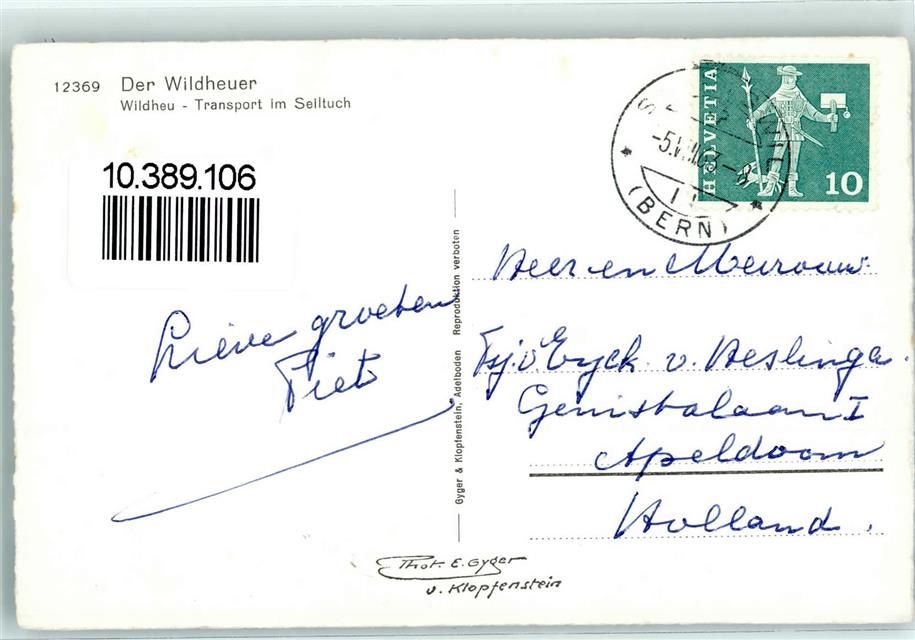 12369 Der Wildheuer
Wildheu - Transport im Seiltuch
10.389.106
HELVETIA
10
(BERN)
Heer en Mevrouw
v. Eyck v. Heslinga
Apeldoorn
Holland.
Lieve groeten
Piet
Gyger & Klopfenstein, Adelboden Reproduktion verboten
Phot. E. Gyger
u. Klopfenstein